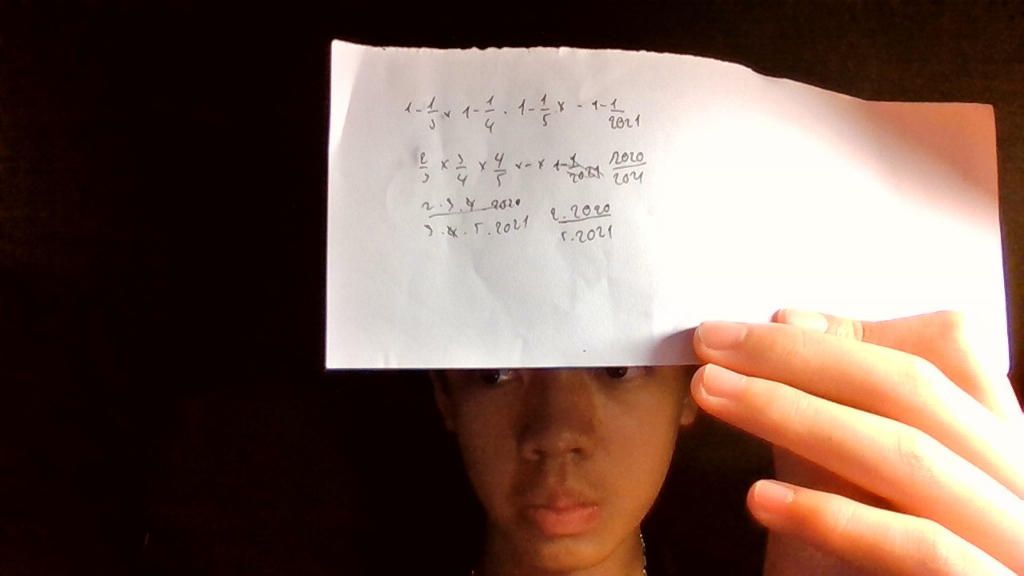 1 - 1/3 x 1 - 1/4 . 1 - 1/5 x - 1 - 1/2021
2/3 x 3/4 x 4/5 x - x 1 - 1/2021 2020/2021
2 . 3 . 4 2020 / 3 . 4 . 5 . 2021 2 . 2020 / 5 . 2021